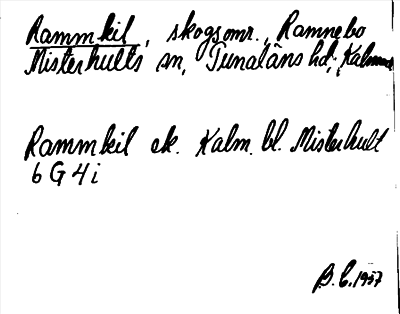 Rammkil, skogsomr., Ramnebo
Misterhults sn, Tunaläns hd, Kalmar
Rammkil ek. Kalm. bl. Misterhult
6 G 4 i
B.C. 1937